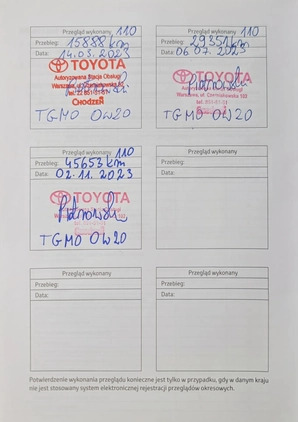 Przegląd wykonany 110
Przebieg: 15888 km
Data: 14.03.2023
TOYOTA
Autoryzowana Stacja Obsługi
Warszawa, ul. Czerniakowska
CHODZEŃ
TGMO 0W20
Przegląd wykonany 110
Przebieg: 29351 km
Data: 06.07.2023
TOYOTA
Autoryzowana Stacja Obsługi
Warszawa, ul. Czerniakowska 100
TGMO 0W20
Przegląd wykonany 110
Przebieg: 45653 km
Data: 02.11.2023
TOYOTA
TGMO 0W20
Przegląd wykonany
Przebieg:
Data:
Przegląd wykonany
Przebieg:
Data:
Przegląd wykonany
Przebieg:
Data:
Potwierdzenie wykonania przeglądu konieczne jest tylko w przypadku, gdy w danym kraju
nie jest stosowany system elektronicznej rejestracji przeglądów okresowych.